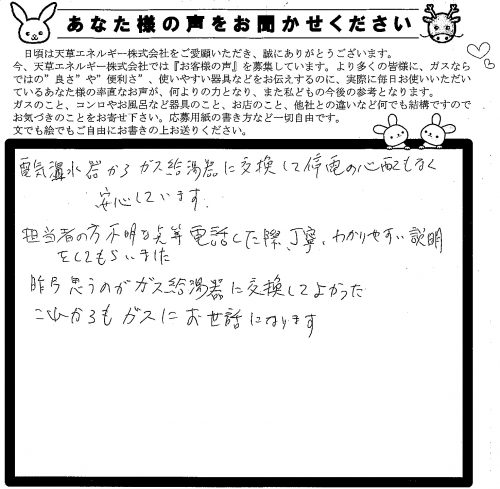 あなた様の声をお聞かせください
日頃は天草エネルギー株式会社をご愛顧いただき、誠にありがとうございます。
今、天草エネルギー株式会社では『お客様の声』を募集しています。より多くの皆様に、ガスなら
ではの”良さ”や”便利さ”、使いやすい器具などをお伝えするのに、実際に毎日お使いいただい
ているあなた様の率直なお声が、何よりの力となり、また私どもの今後の参考となります。
ガスのこと、コンロやお風呂など器具のこと、お店のこと、他社との違いなど何でも結構ですので
お気づきのことをお寄せ下さい。応募用紙の書き方など一切自由です。
文でも絵でもご自由にお書きの上お送りください。
電気温水器からガス給湯器に交換して停電の心配もなく
安心しています.
担当者の方不明な点等電話した際、丁寧、わかりやすい説明
をしてもらいました
昨今思うのがガス給湯器に交換してよかった
これからもガスにお世話になります